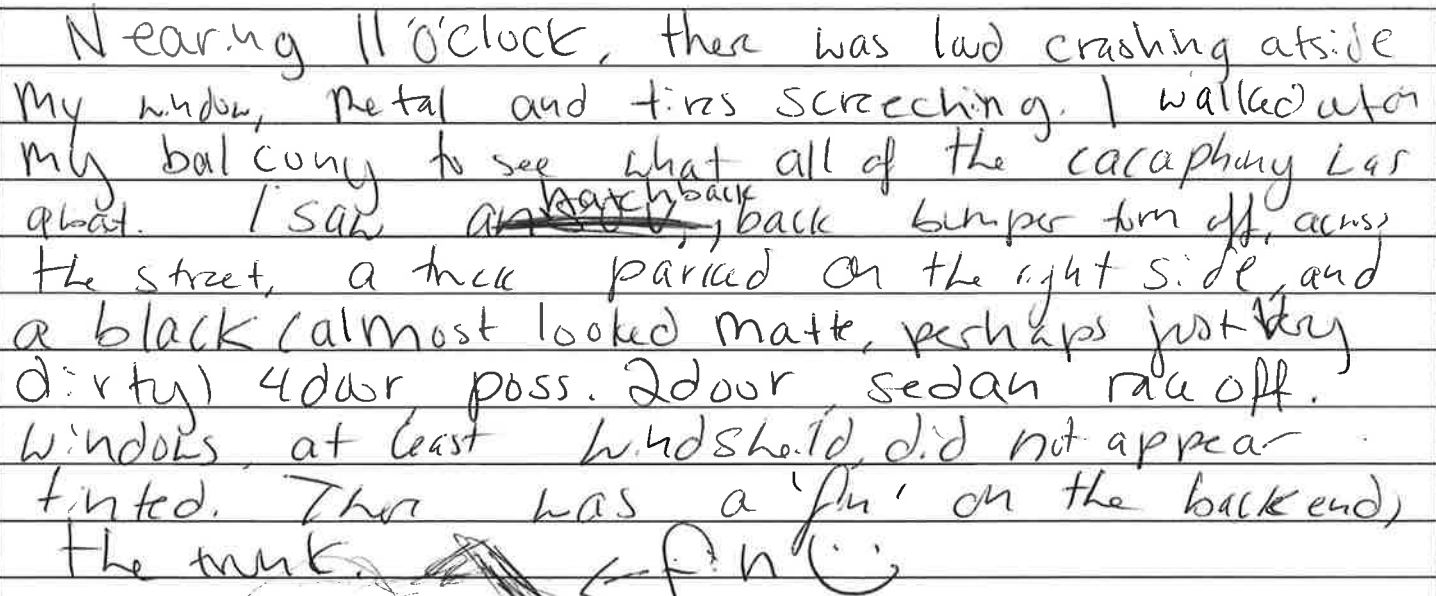 Nearing 11 o'clock, there was loud crashing outside
my window, metal and tires screeching. I walked out on
my balcony to see what all of the cacaphony was
about. I saw a hatchback, back bumper torn off, across
the street, a truck parked on the right side, and
a black (almost looked matte, perhaps just very
dirty) 4door, poss. 2door, sedan race off.
Windows, at least windsheild, did not appear
tinted. There was a 'fin' on the back end,
the trunk. ← fin